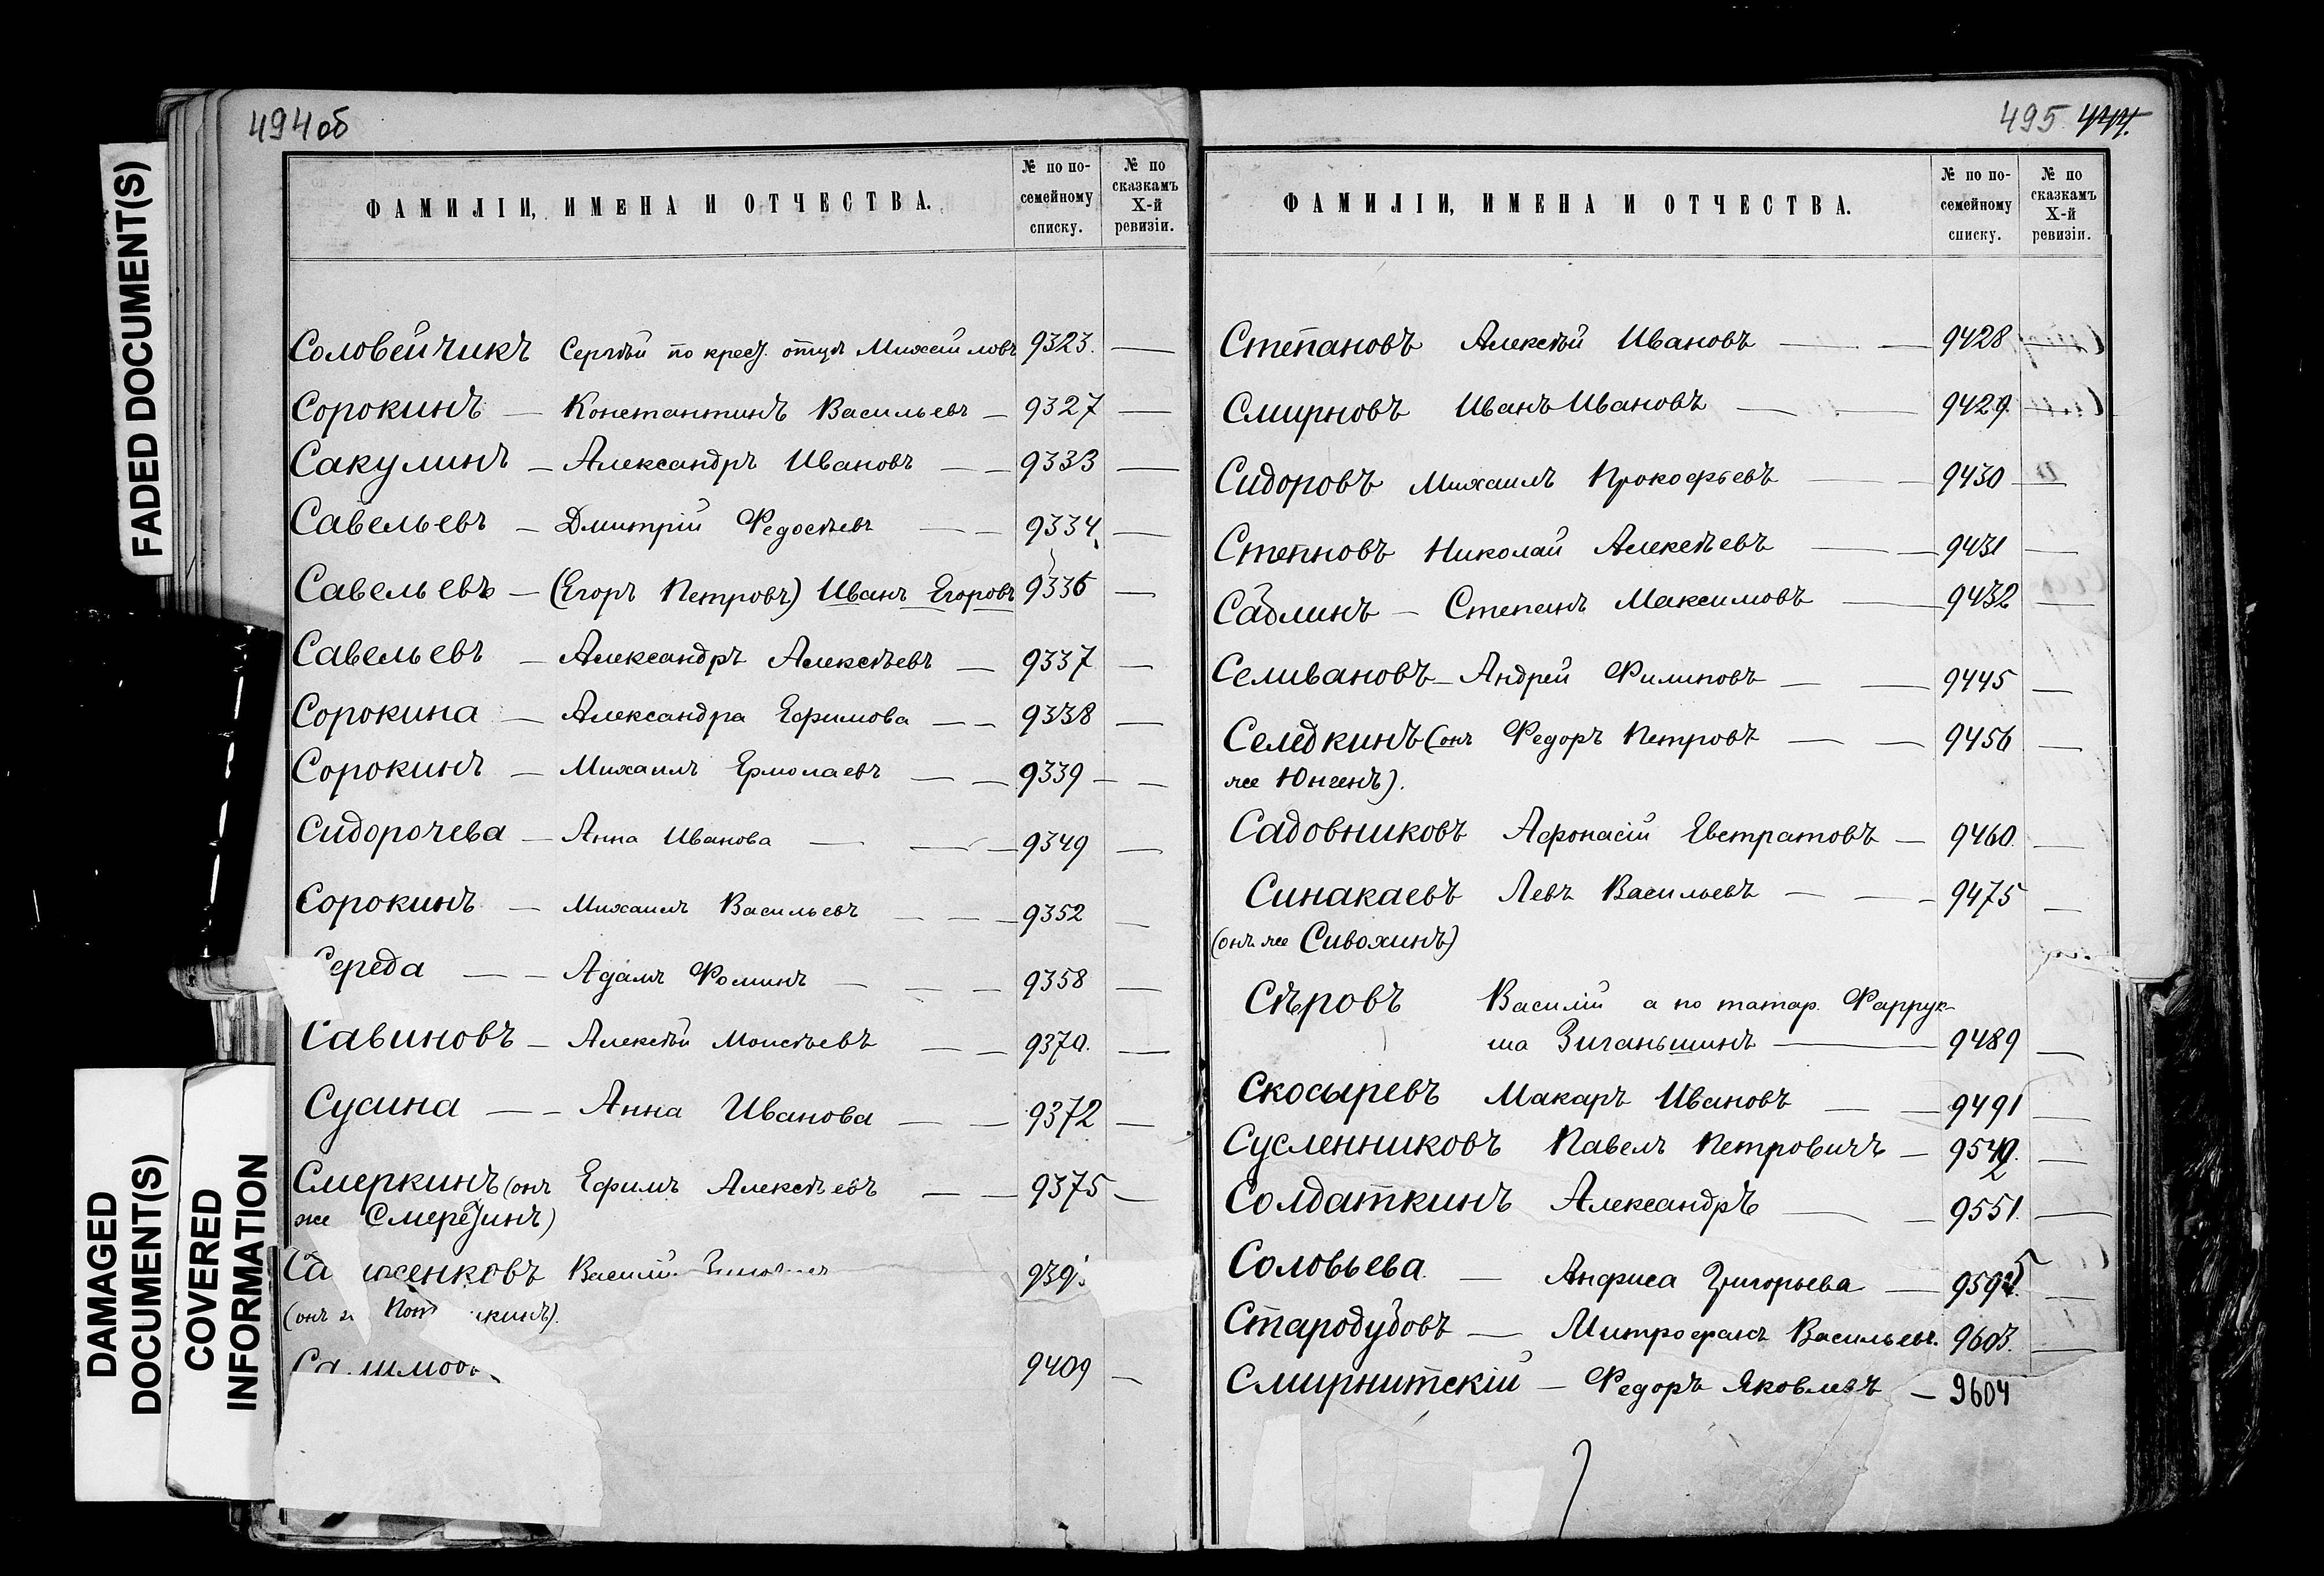 494об
ФАМИЛІИ, ИМЕНА И ОТЧЕСТВА.
№ по по-
семейному
списку.
№ по
сказкамъ
X-й
ревизіи.
Соловейчикъ Сергѣй по крест. отцу Михайловъ 9323. —
Сорокинъ — Константинъ Васильевъ — 9327 —
Сакулинъ — Александръ Ивановъ — — 9333 —
Савельевъ — Дмитрій Федосѣевъ — — 9334 —
Савельевъ — (Егоръ Петровъ) Иванъ Егоровъ 9336 —
Савельевъ — Александръ Алексѣевъ — 9337 —
Сорокина — Александра Ефимова — — 9338 —
Сорокинъ — Михаилъ Ермолаевъ — — 9339 — —
Сидорочева — Анна Иванова — — — 9349 —
Сорокинъ — Михаилъ Васильевъ — — — 9352 —
Середа — — Адамъ Фоминъ — — — 9358 —
Савиновъ — Алексѣй Моисѣевъ — — 9370. —
Сусина — — Анна Иванова — — 9372 —
Смеркинъ (онъ Ефимъ Алексѣевъ — — 9375 —
же Смередин)
женковъ Василій
(онъ
9409 —
495
ФАМИЛІИ, ИМЕНА И ОТЧЕСТВА.
№ по по-
семейному
списку.
№ по
сказкамъ
X-й
ревизіи.
Степановъ Алексѣй Ивановъ — — 9428 —
Смирновъ Иванъ Ивановъ — — 9429. —
Сидоровъ Михаилъ Прокофьевъ — — 9430 —
Степновъ Николай Алексѣевъ — — 9431 —
Садлинъ — Степанъ Максимовъ — — 9432 —
Селивановъ — Андрей Филиповъ — — 9445 —
Селедкинъ (онъ Федоръ Петровъ — — 9456 —
же Юнгенъ).
Садовниковъ Афонасій Евстратовъ — 9460. —
Синакаевъ Левъ Васильевъ — — — 9475 —
(онъ же Сивохинъ)
Сѣровъ Василій а по татар. Фаррук-
ша Зиганьшинъ — 9489 —
Скосыревъ Макаръ Ивановъ — — 9491 —
Сусленниковъ Павелъ Петровичъ — 9542 —
Солдаткинъ Александръ — — 9551. —
Соловьева — Анфиса Григорьева — 9595 —
Стародубовъ — Митрофанъ Васильевъ. 9603. —
Смирнитскій — Федоръ Яковлевъ — 9604
FADED DOCUMENT(S)
DAMAGED
DOCUMENT(S)
COVERED
INFORMATION